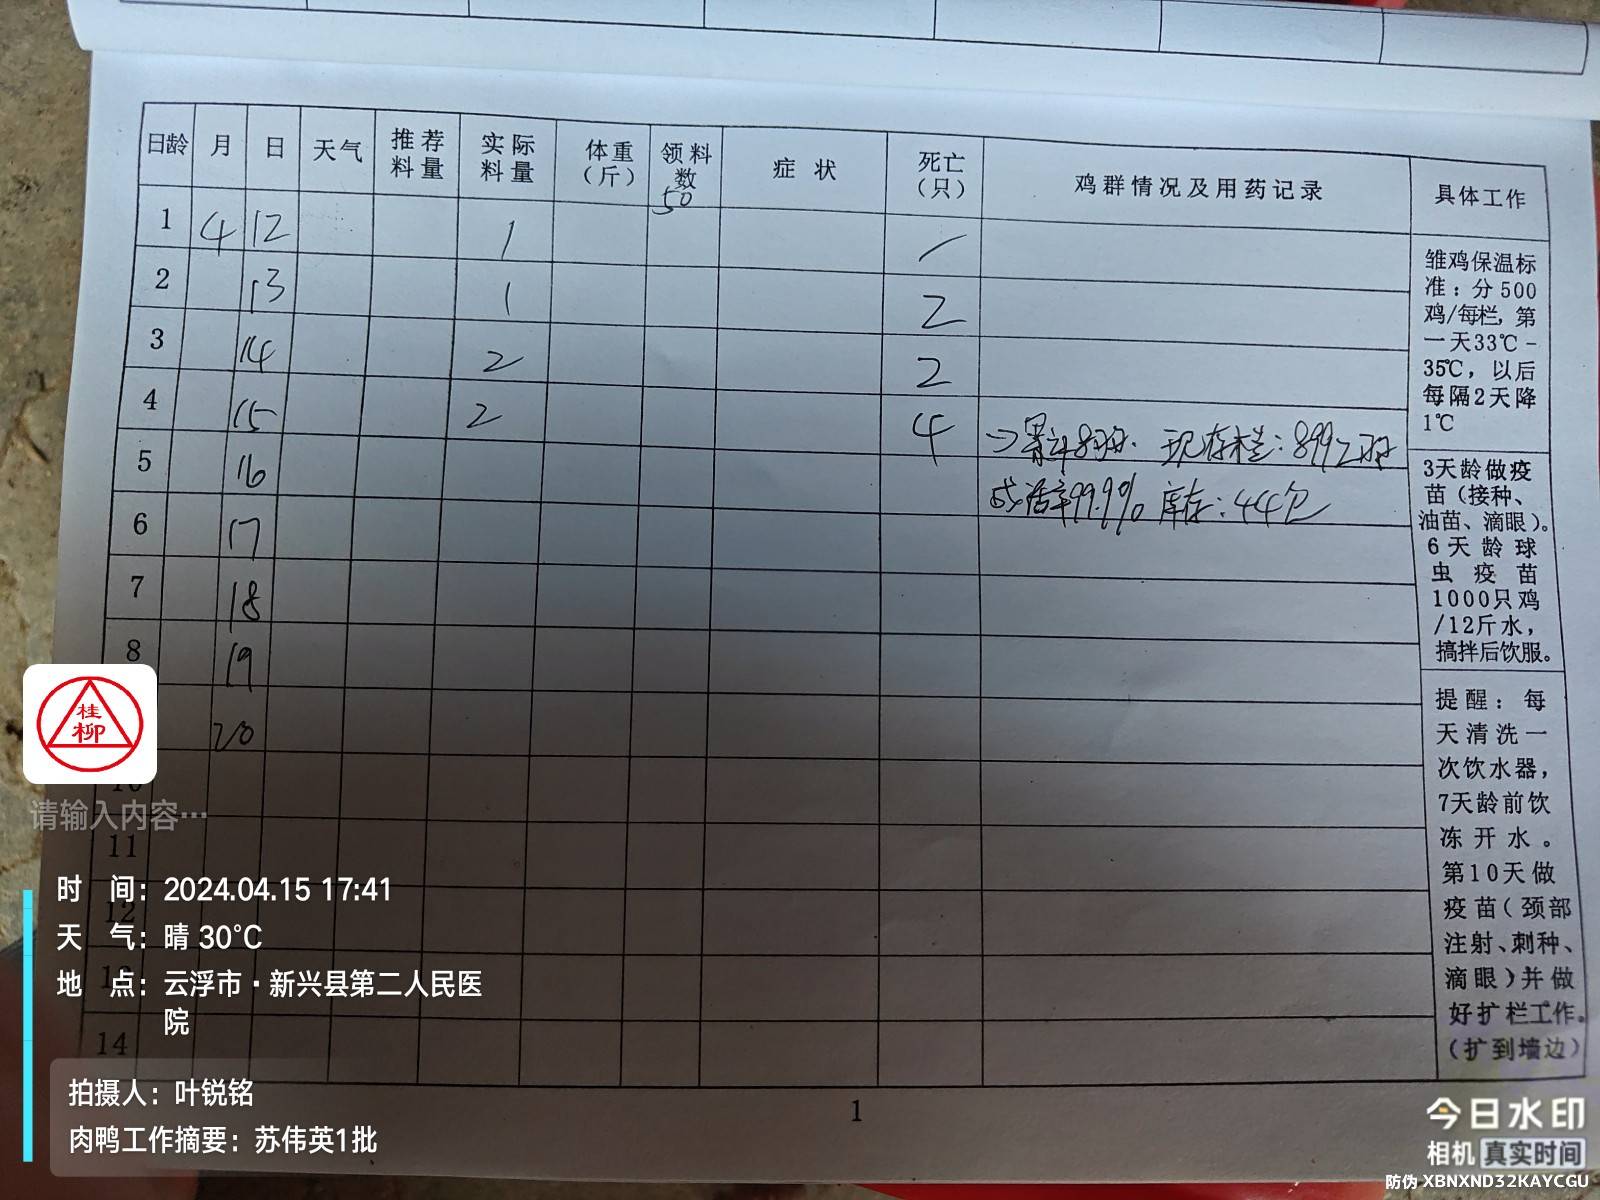 日龄 月 日 天气 推荐料量 实际料量 体重（斤） 领料数 症状 死亡（只） 鸡群情况及用药记录 具体工作
50
1 4 12 1 /
2 13 1 2
3 14 2 2
4 15 2 4
现存栏：8992
5 16
成活率99.9% 库存：44包
6 17
7 18
8 19
20
10
11
12
13
14
雏鸡保温标
准：分500
鸡/每栏，第
一天33℃-
35℃，以后
每隔2天降
1℃
3天龄做疫
苗（接种、
油苗、滴眼）。
6天龄球
虫疫苗
1000只鸡
/12斤水，
搞拌后饮服。
提醒：每
天清洗一
次饮水器，
7天龄前饮
冻开水。
第10天做
疫苗（颈部
注射、刺种、
滴眼）并做
好扩栏工作。
（扩到墙边）
1
桂
柳
请输入内容…
时 间：2024.04.15 17:41
天 气：晴 30℃
地 点：云浮市·新兴县第二人民医
院
拍摄人：叶锐铭
肉鸭工作摘要：苏伟英1批
今日水印
相机 真实时间
防伪 XBNXND32KAYCGU